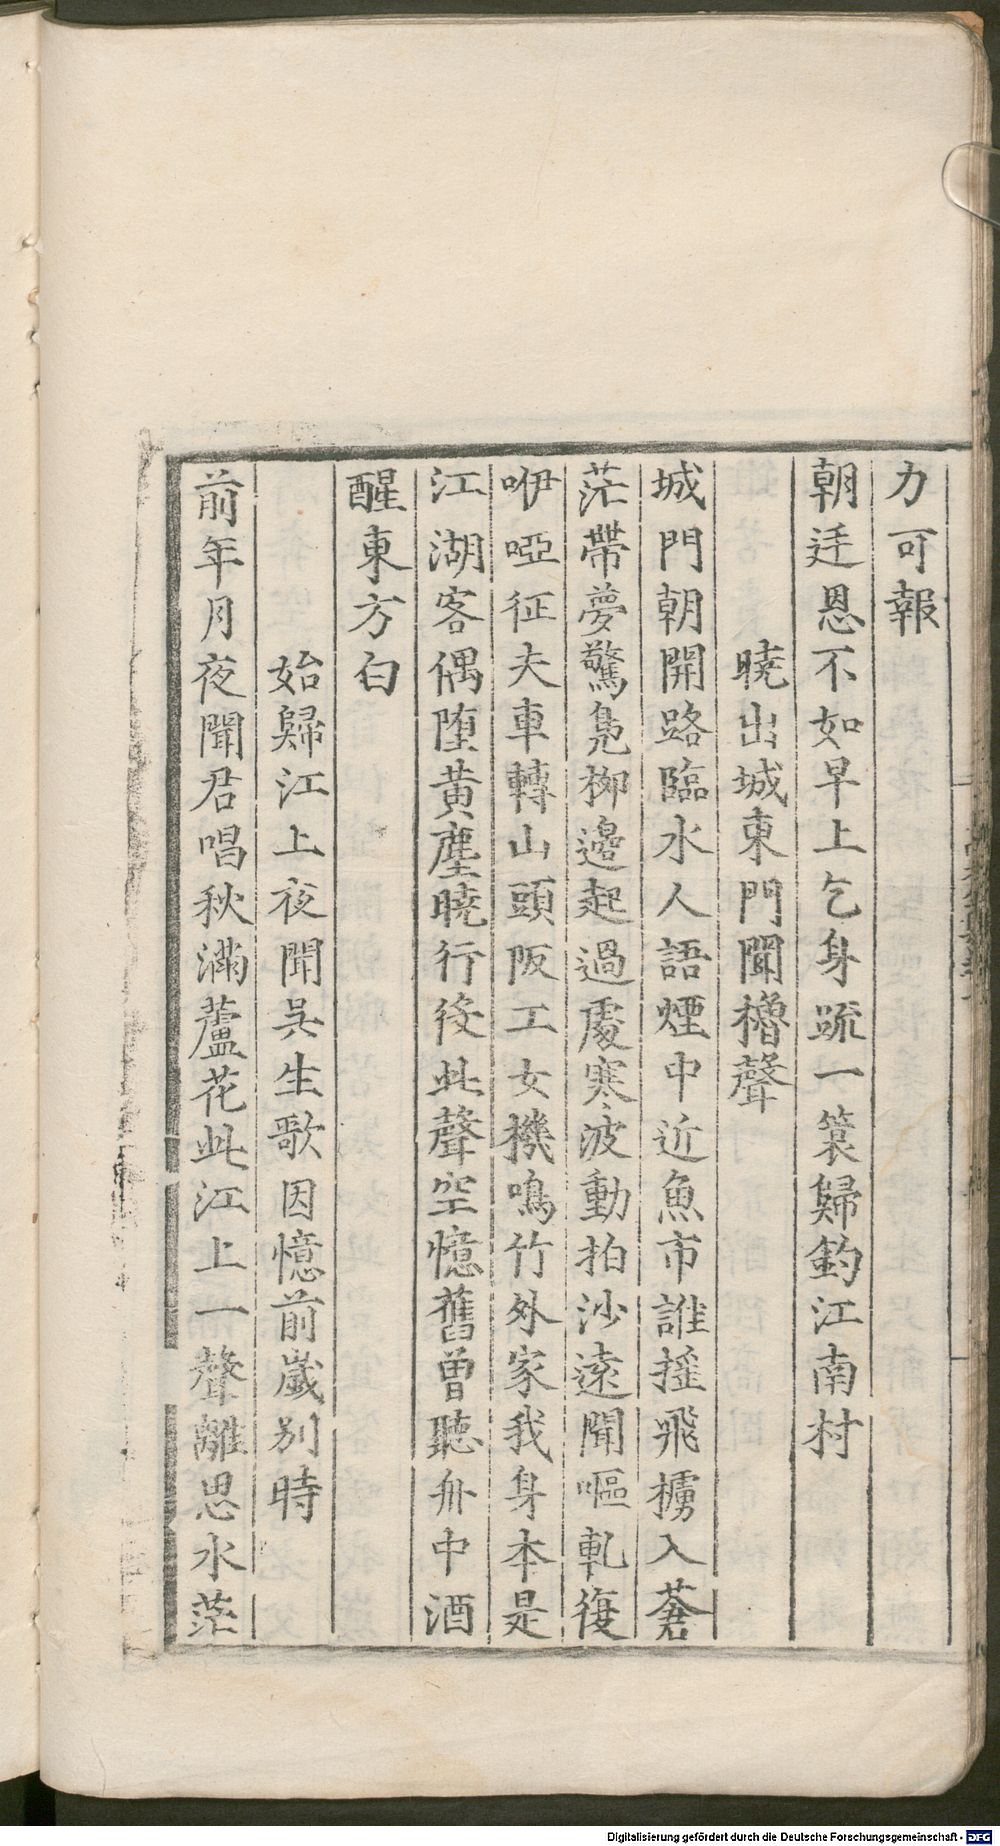 力可報
朝廷恩不如早上乞身䟽一簑歸釣江南村
曉出城東門聞櫓聲
城門朝開路臨水人語煙中近魚市誰揺飛櫎入蒼
茫帶夢驚鳬柳邊起過處寒波動拍沙遠聞嘔軋復
咿啞征夫車轉山頭阪工女機鳴竹外家我身本是
江湖客偶墮黄塵曉行役此聲空憶舊曾聽舟中酒
醒東方白
始歸江上夜聞吳生歌因憶前歲别時
前年月夜聞君唱秋滿蘆花此江上一聲離思水茫
Digitalisierung gefördert durch die Deutsche Forschungsgemeinschaft - DFG